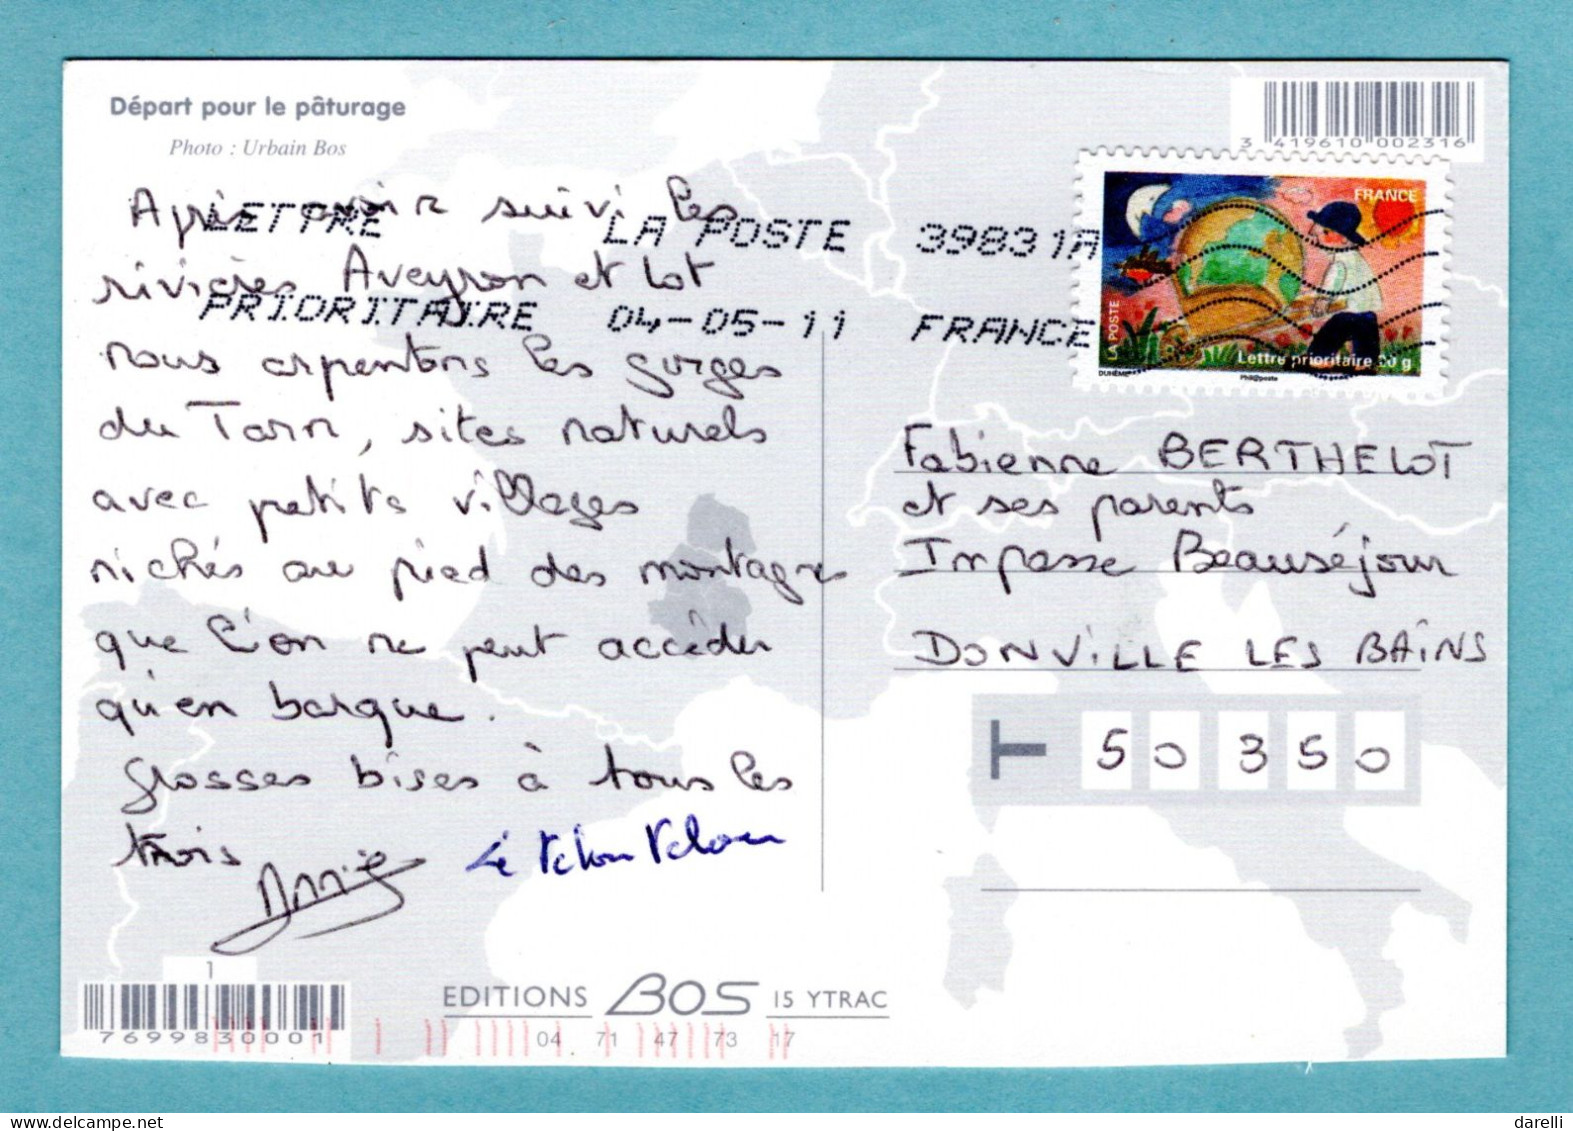 Départ pour le pâturage
Photo : Urbain Bos
3 419610 002316
LETTRE LA POSTE 39831A
PRIORITAIRE 04-05-11 FRANCE
FRANCE
LA POSTE
Lettre prioritaire 20 g
DUHÊME
Phil@poste
Après avoir suivi les
rivières Aveyron et Lot
nous arpentons les gorges
du Tarn, sites naturels
avec petits villages
nichés au pied des montagnes
que l'on ne peut accéder
qu'en barque.
Grosses bises à tous les
trois
Annie
Fabienne BERTHELOT
et ses parents
Impasse Beauséjour
DONVILLE LES BAINS
50350
1
7699830001
EDITIONS BOS 15 YTRAC
04 71 47 73 17
darelli
delcampe.net